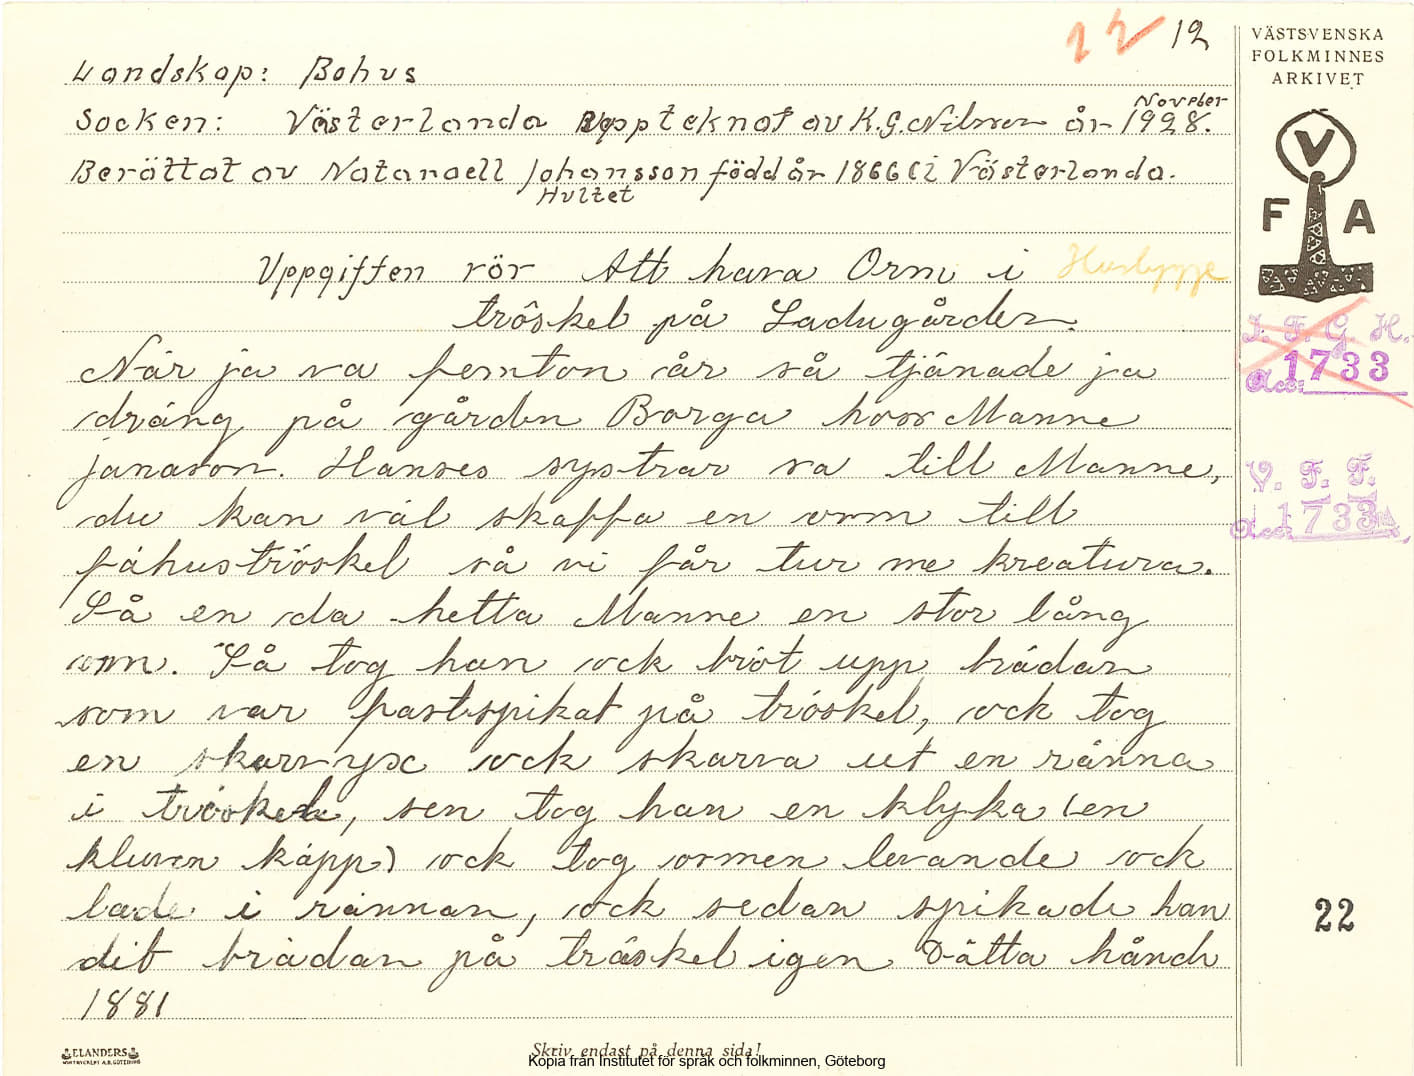 22 12
VÄSTSVENSKA
FOLKMINNES
ARKIVET
V
F A
Landskap: Bohus
Novber
Socken: Västerlanda Uppteknat av K.G. Nilsson år 1928.
Berättat av Natanaell Johansson född år 1866 i Västerlanda.
Hultet
Uppgiften rör Att hava Orm i
tröskel på Ladugården.
När ja va femton år så tjänade ja
dräng på gården Borga hoss Manne
janason. Hanses systrar sa till Manne,
du kan väl skaffa en orm till
fähuströskel så vi får tur me kreatura.
Så en da hetta Manne en stor lång
orm. Så tog han ock bröt upp brädan
som var fastspikat på tröskel, ock tog
en skarvyx ock skarva ut en ränna
i tröskeln, sen tog han en klyka (en
kluven käpp) ock tog ormen levande ock
lade i rännan, ock sedan spikade han
dit brädan på träskel igen Dätta hände
1881
I. F. G. H.
Acc: 1733
V. F. F.
Acc. 1733
22
ELANDERS
Skriv endast på denna sida!
Kopia från Institutet för språk och folkminnen, Göteborg